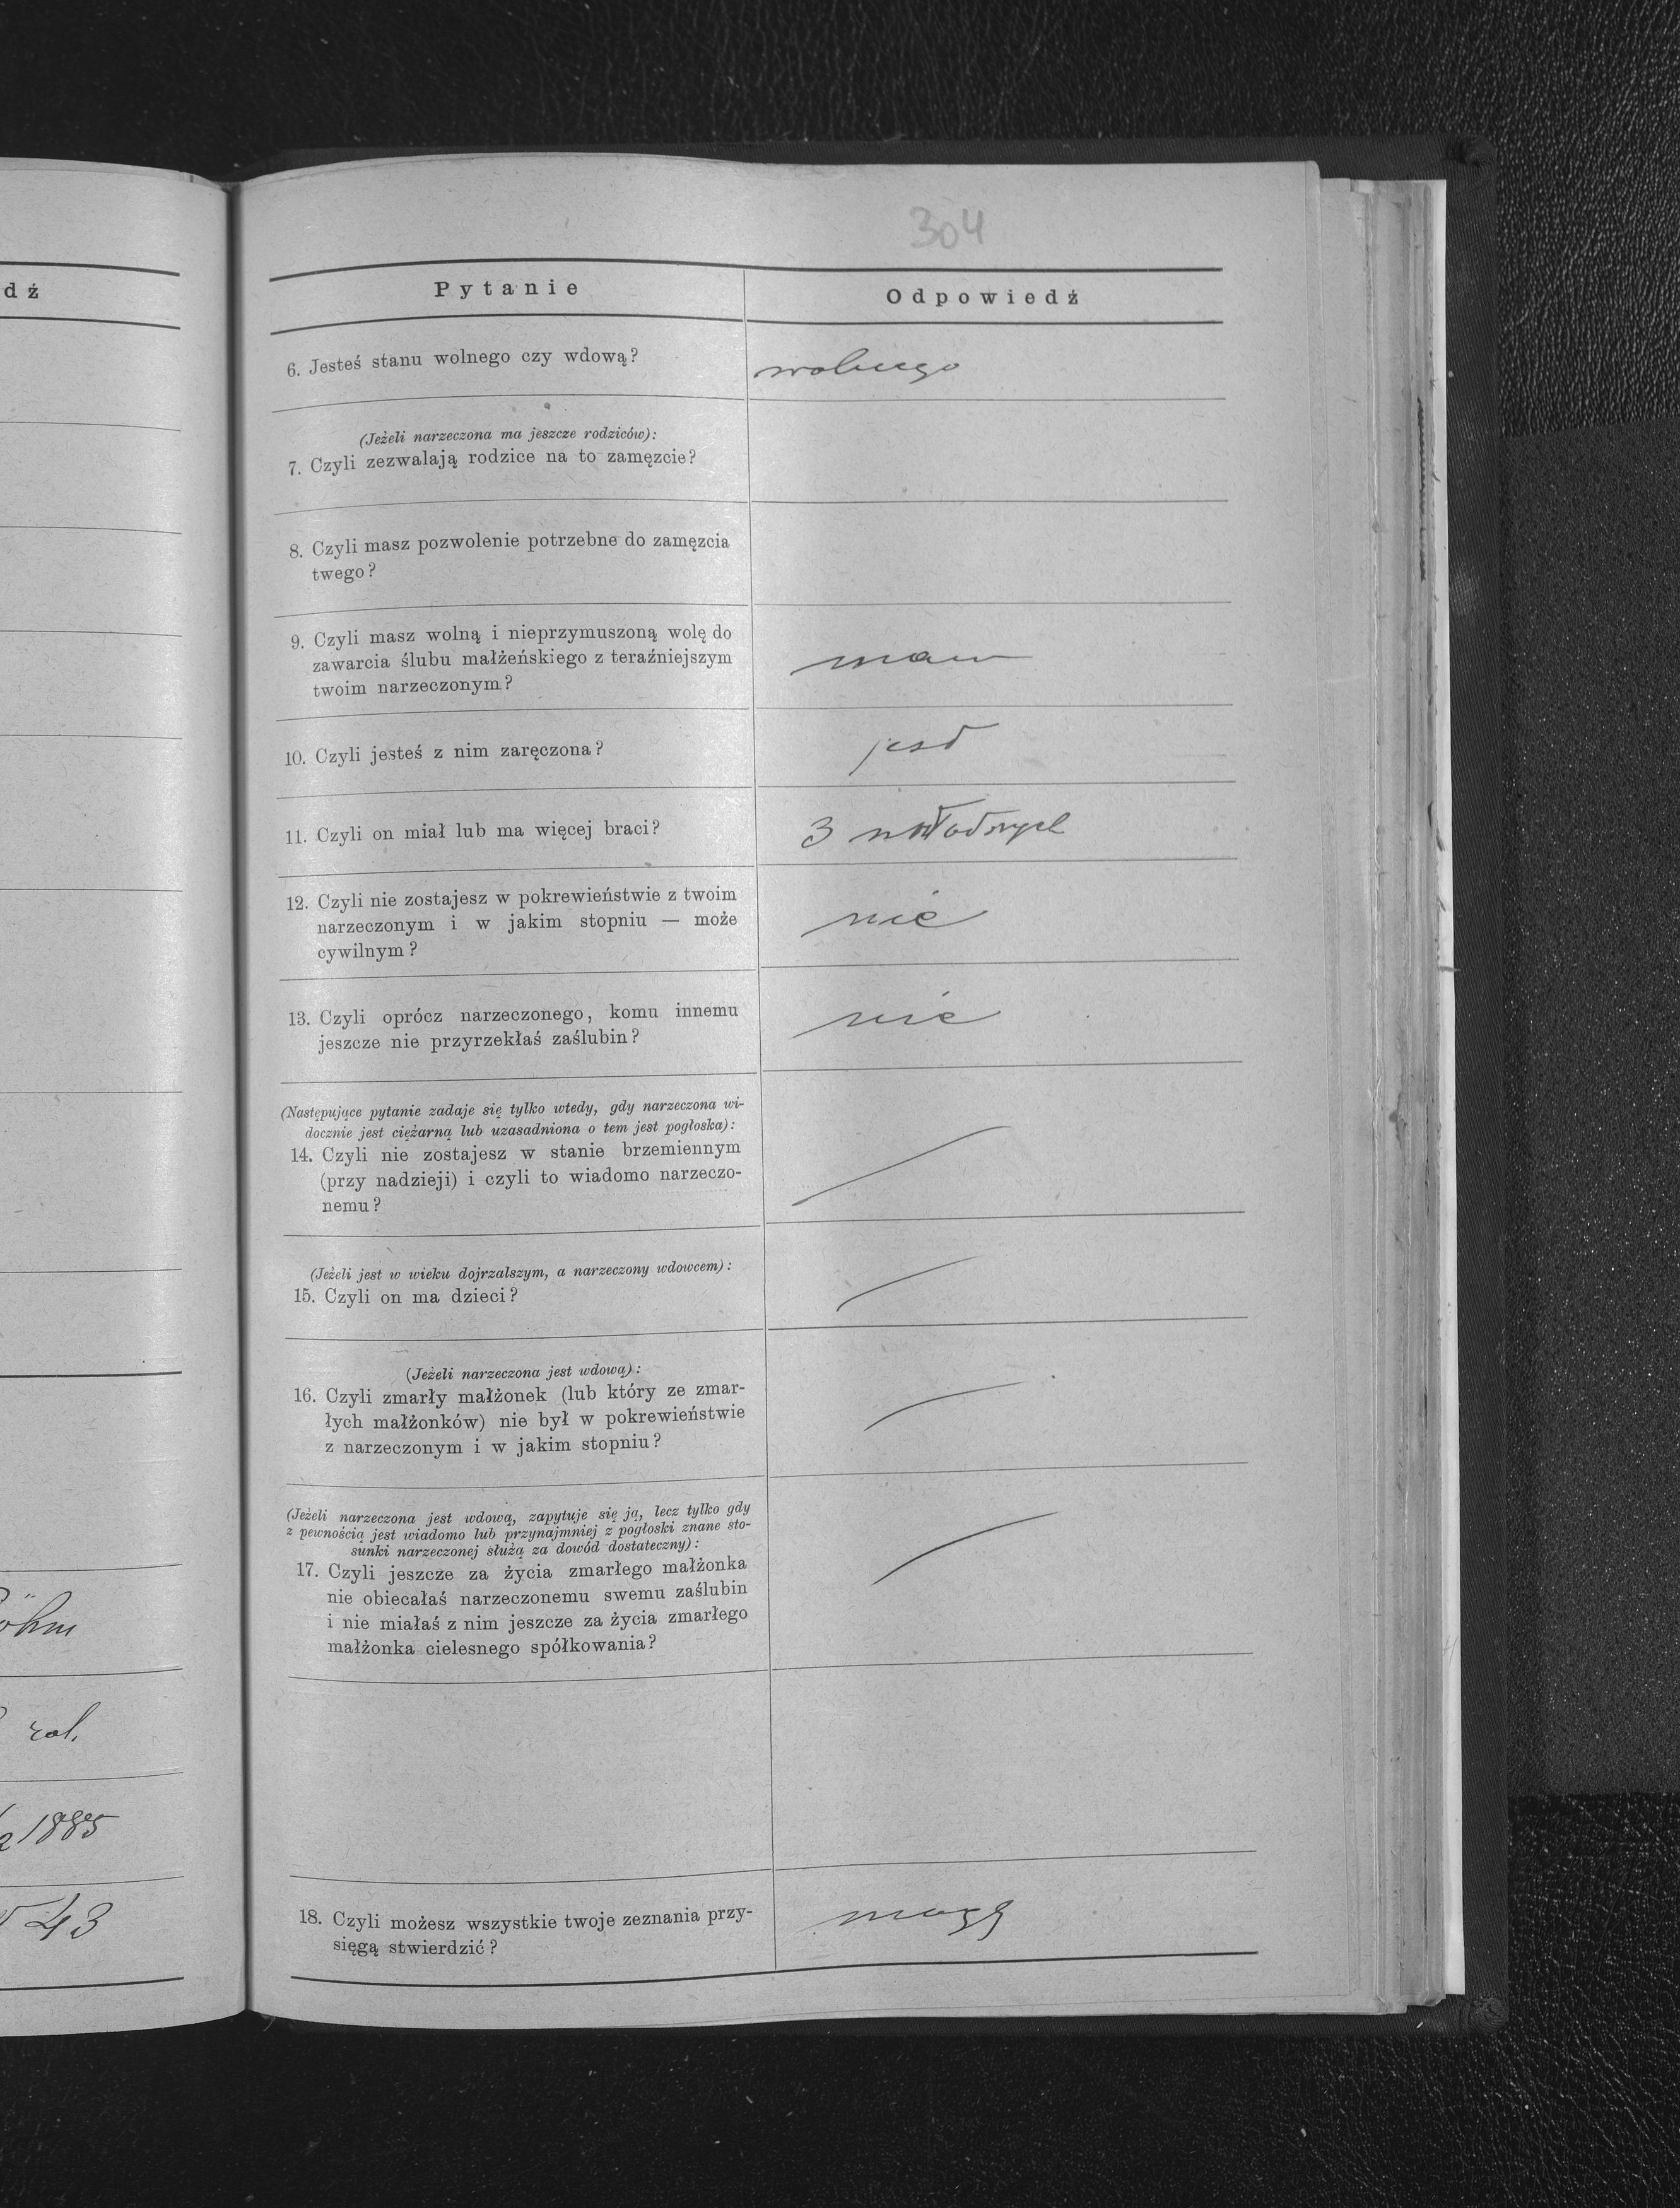 304
dź
Pytanie
Odpowiedź
6. Jesteś stanu wolnego czy wdową?
wolnego
(Jeżeli narzeczona ma jeszcze rodziców):
7. Czyli zezwalają rodzice na to zamęzcie?
8. Czyli masz pozwolenie potrzebne do zamęzcia
twego?
9. Czyli masz wolną i nieprzymuszoną wolę do
zawarcia ślubu małżeńskiego z teraźniejszym
twoim narzeczonym?
mam
10. Czyli jesteś z nim zaręczona?
jest
11. Czyli on miał lub ma więcej braci?
3
12. Czyli nie zostajesz w pokrewieństwie z twoim
narzeczonym i w jakim stopniu — może
cywilnym?
nie
13. Czyli oprócz narzeczonego, komu innemu
jeszcze nie przyrzekłaś zaślubin?
nie
(Następujące pytanie zadaje się tylko wtedy, gdy narzeczona wi-
docznie jest ciężarną lub uzasadniona o tem jest pogłoska):
14. Czyli nie zostajesz w stanie brzemiennym
(przy nadzieji) i czyli to wiadomo narzeczo-
nemu?
(Jeżeli jest w wieku dojrzalszym, a narzeczony wdowcem):
15. Czyli on ma dzieci?
(Jeżeli narzeczona jest wdową):
16. Czyli zmarły małżonek (lub który ze zmar-
łych małżonków) nie był w pokrewieństwie
z narzeczonym i w jakim stopniu?
(Jeżeli narzeczona jest wdową, zapytuje się ją, lecz tylko gdy
z pewnością jest wiadomo lub przynajmniej z pogłoski znane sto-
sunki narzeczonej służą za dowód dostateczny):
17. Czyli jeszcze za życia zmarłego małżonka
nie obiecałaś narzeczonemu swemu zaślubin
i nie miałaś z nim jeszcze za życia zmarłego
małżonka cielesnego spółkowania?
öhm
1885
43
18. Czyli możesz wszystkie twoje zeznania przy-
sięgą stwierdzić?
mogę